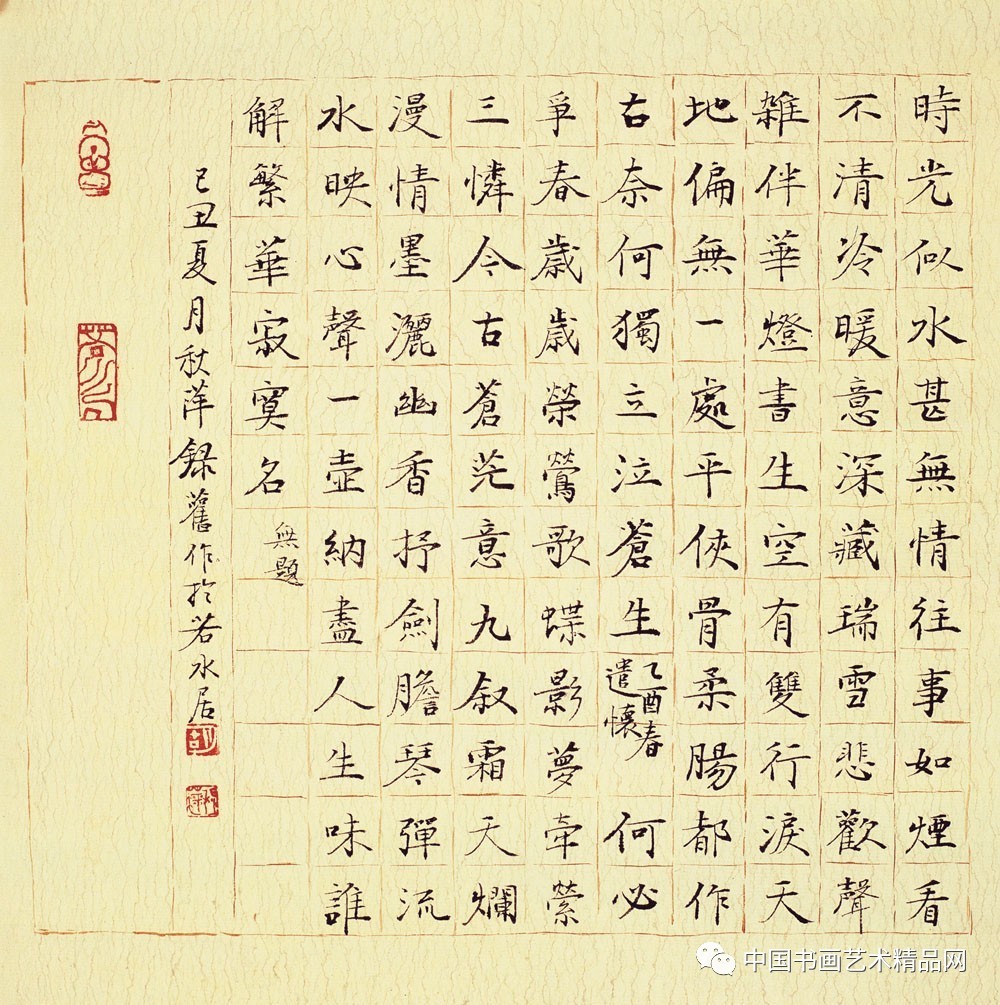 時光似水甚無情往事如煙看
不清冷暖意深藏瑞雪悲歡聲
雜伴華燈書生空有雙行淚天
地偏無一處平俠骨柔腸都作
古奈何獨立泣蒼生
乙酉春
遣懷
何必
爭春歲歲榮鶯歌蝶影夢牽縈
三憐今古蒼茫意九叙霜天爛
漫情墨灑幽香抒劍膽琴彈流
水映心聲一壺納盡人生味誰
解繁華寂寞名
無題
己丑夏月秋萍録舊作於若水居
中国书画艺术精品网